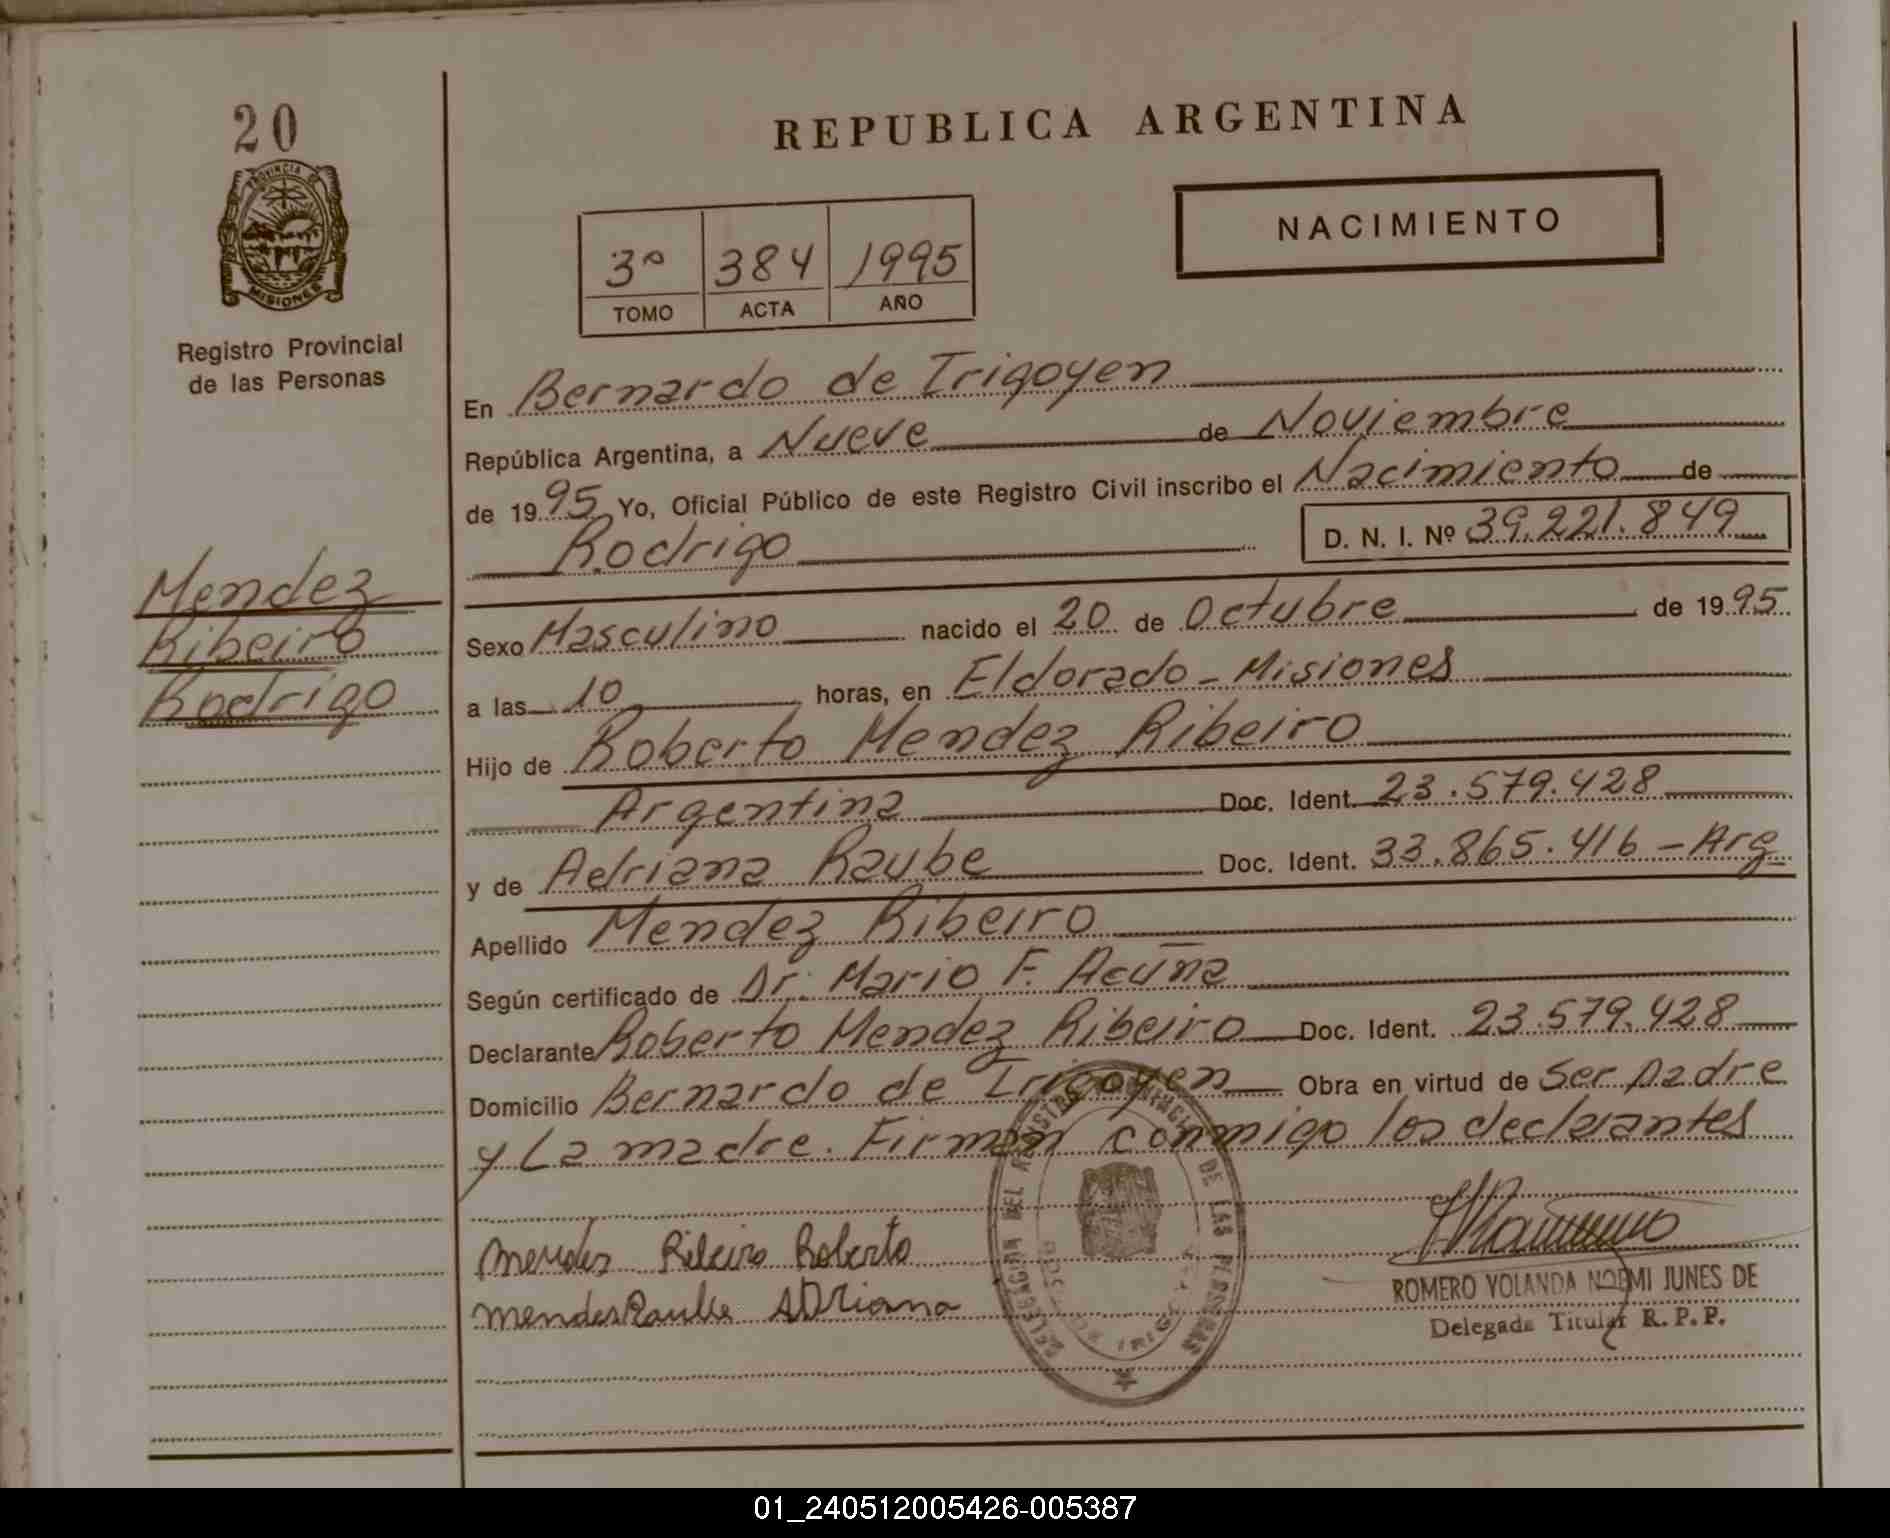 20
PROVINCIA DE
MISIONES
Registro Provincial
de las Personas
Mendez
Ribeiro
Rodrigo
REPUBLICA ARGENTINA
NACIMIENTO
3º 384 1995
TOMO ACTA AÑO
En Bernardo de Irigoyen
República Argentina, a Nueve de Noviembre
de 1995 Yo, Oficial Público de este Registro Civil inscribo el Nacimiento de
Rodrigo D. N. I. Nº 39.221.849
Sexo Masculino nacido el 20 de Octubre de 1995
a las 10 horas, en Eldorado - Misiones
Hijo de Roberto Mendez Ribeiro
Argentina Doc. Ident. 23.579.428
y de Adriana Raube Doc. Ident. 33.865.416 - Arg
Apellido Mendez Ribeiro
Según certificado de Dr. Mario F. Acuña
Declarante Roberto Mendez Ribeiro Doc. Ident. 23.579.428
Domicilio Bernardo de Irigoyen Obra en virtud de Ser padre
y La madre. Firman conmigo los declarantes
Mendes Ribeiro Roberto
Mendes Raube ADRiana
DELEGACION DEL REGISTRO PROVINCIAL DE LAS PERSONAS
ROMERO YOLANDA NOEMI JUNES DE
Delegada Titular R. P. P.
01_240512005426-005387